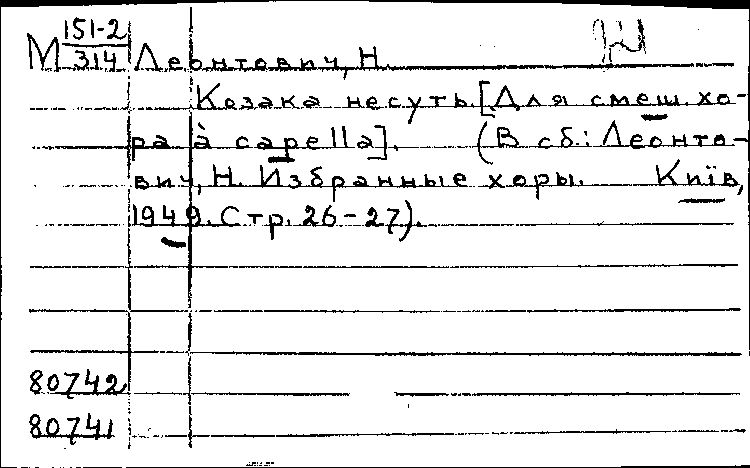 М 151-2/314 Леонтович, Н.
Козака несуть. [Для смеш. хо-
ра à capella]. (В сб.: Леонто-
вич, Н. Избранные хоры. Київ,
1949. Стр. 26-27).
80742
80741